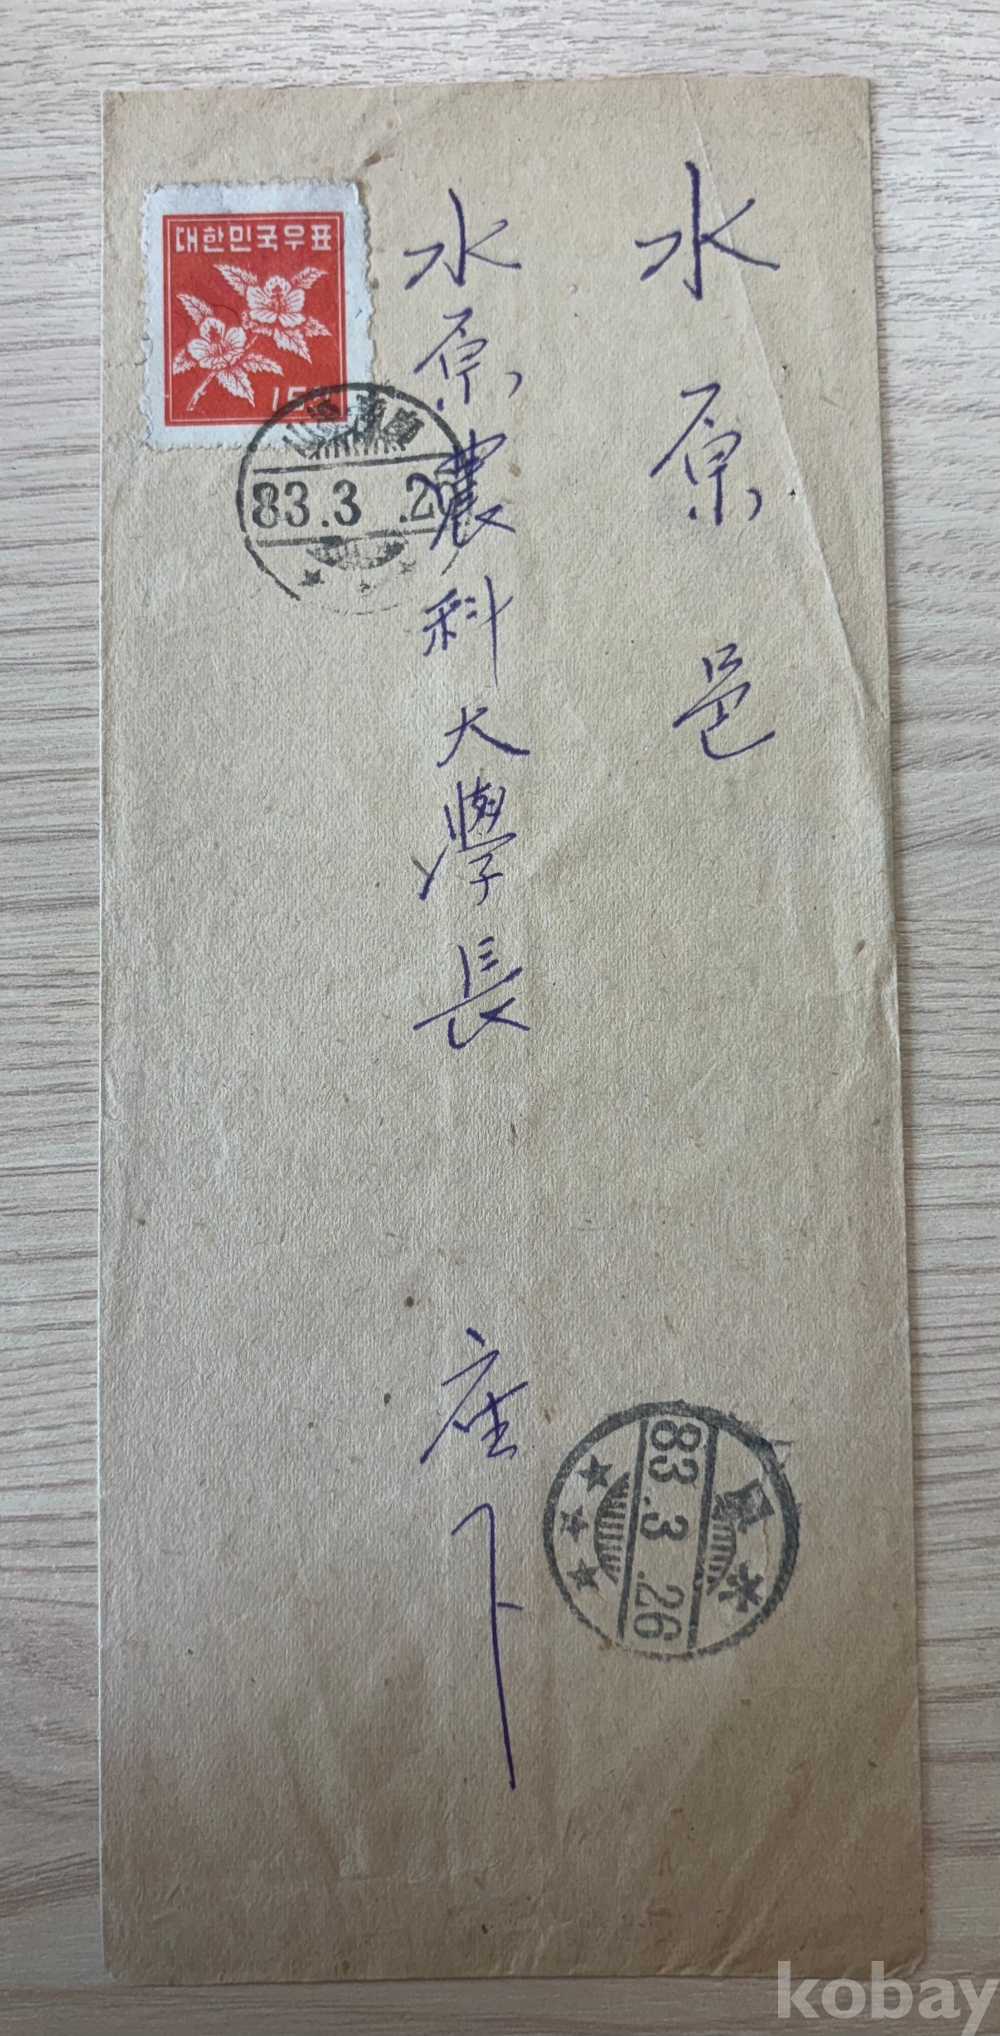 水原邑
水原農科大學長 座下
대한민국우표
15
83.3.26
83.3.26
kobay